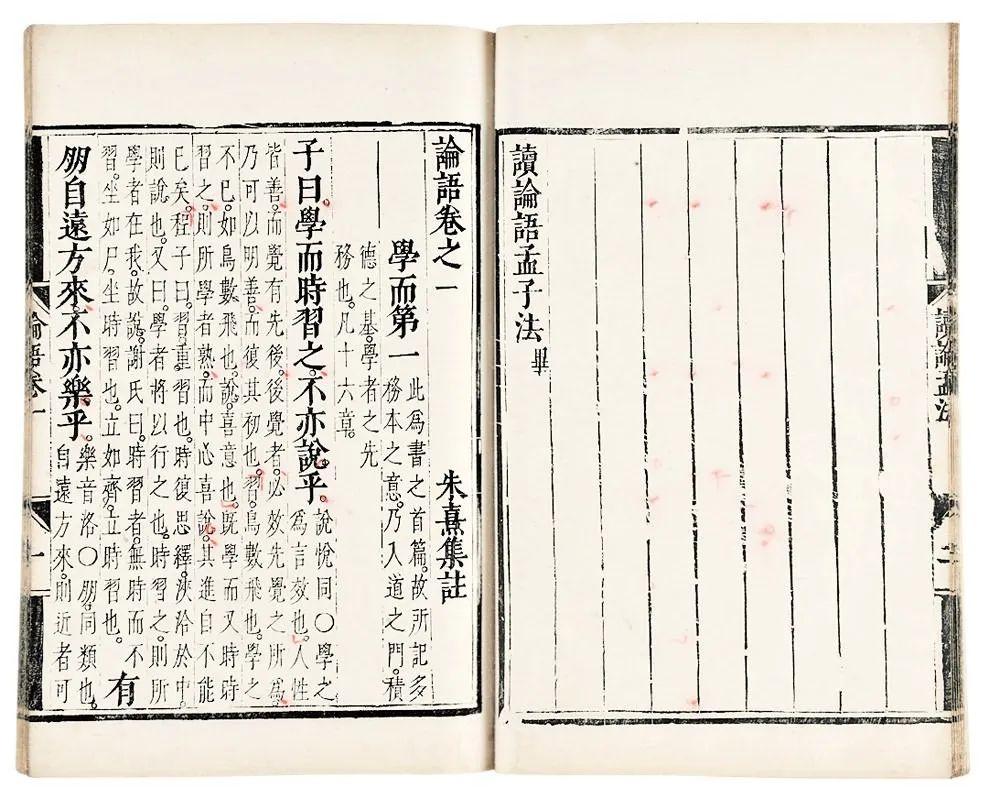 讀論孟法
讀論語孟子法畢
論語卷之一 朱熹集註
學而第一 此爲書之首篇。故所記多
務本之意。乃入道之門。積
德之基。學者之先
務也。凡十六章。
子曰。學而時習之。不亦說乎。 說悅同○學之
爲言效也。人性
皆善。而覺有先後。後覺者。必效先覺之所爲。
乃可以明善。而復其初也。習。鳥數飛也。學之
不已。如鳥數飛也。說。喜意也。旣學而又時時
習之。則所學者熟。而中心喜說。其進自不能
已矣。程子曰。習。重習也。時復思繹。浹洽於中。
則說也。又曰。學者將以行之也。時習之。則所
學者在我。故說。謝氏曰。時習者。無時而不
習。坐如尸。坐時習也。立如齊。立時習也。 有
朋自遠方來。不亦樂乎。 樂音洛○朋。同類也。
自遠方來。則近者可
論語卷一
一